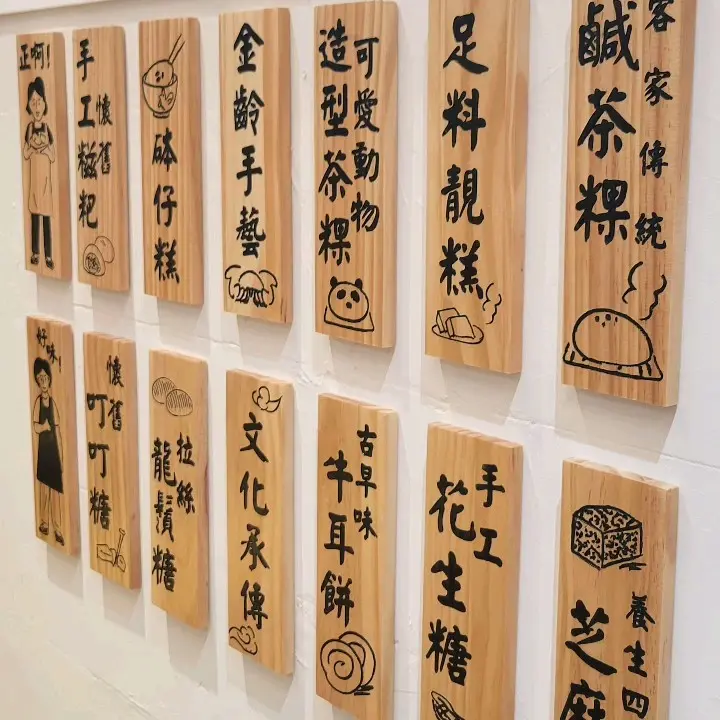 正啊!
手工糍粑
懷舊
砵仔糕
金齡手藝
可愛動物
造型茶粿
足料靚糕
客家傳統
鹹茶粿
好味!
懷舊
叮叮糖
拉絲
龍鬚糖
文化承傳
古早味
牛耳餅
手工
花生糖
養生四
芝麻